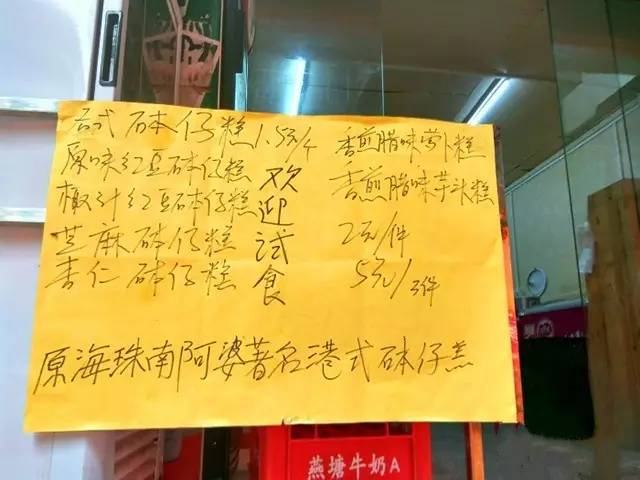 各式砵仔糕1.5元/个
原味红豆砵仔糕
椰汁红豆砵仔糕
芝麻砵仔糕
杏仁砵仔糕
欢迎试食
香煎腊味萝卜糕
香煎腊味芋头糕
2元/件
5元/3件
原海珠南阿婆著名港式砵仔羔
燕塘牛奶A